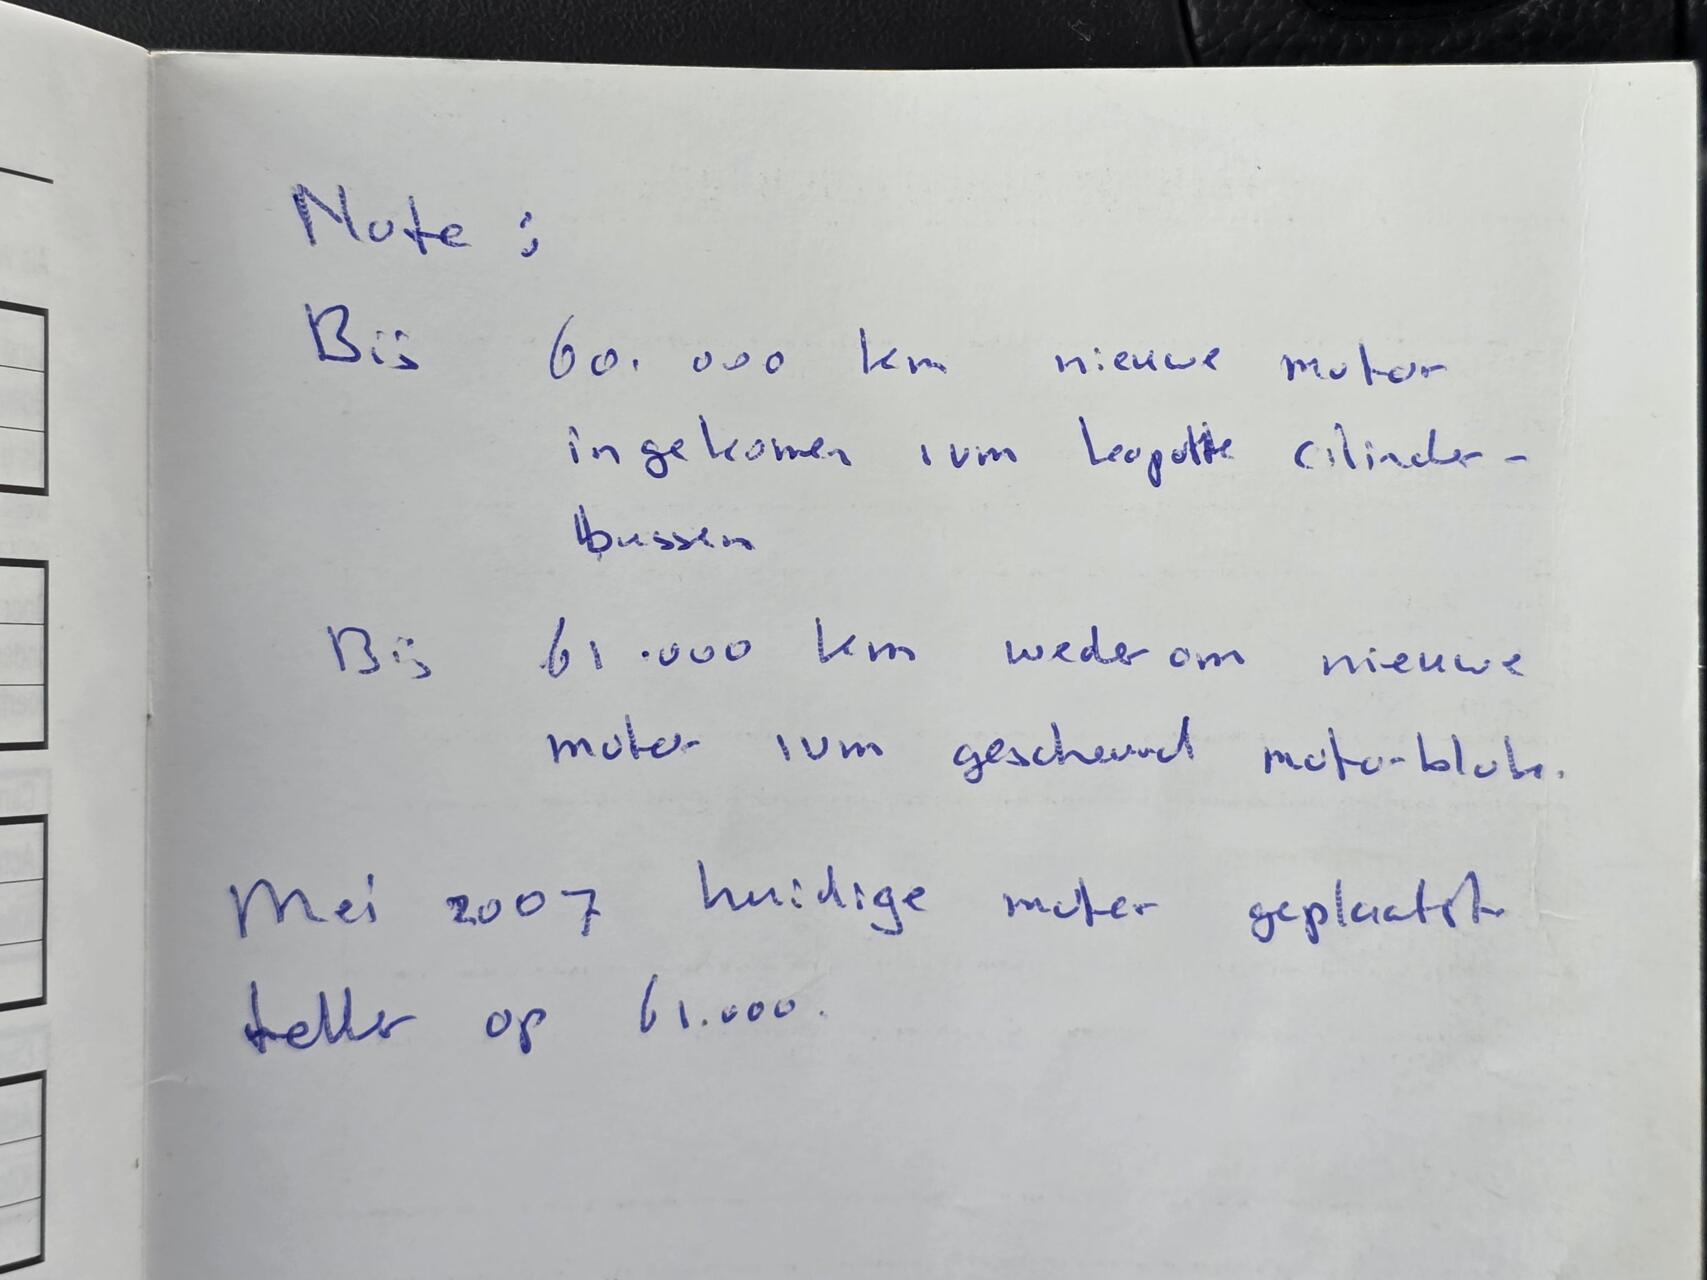 Note :
Bij 60.000 km nieuwe motor
ingekomen ivm kapotte cilinder-
bussen
Bij 61.000 km wederom nieuwe
motor ivm gescheurd motor-blok.
Mei 2007 huidige motor geplaatst
teller op 61.000.